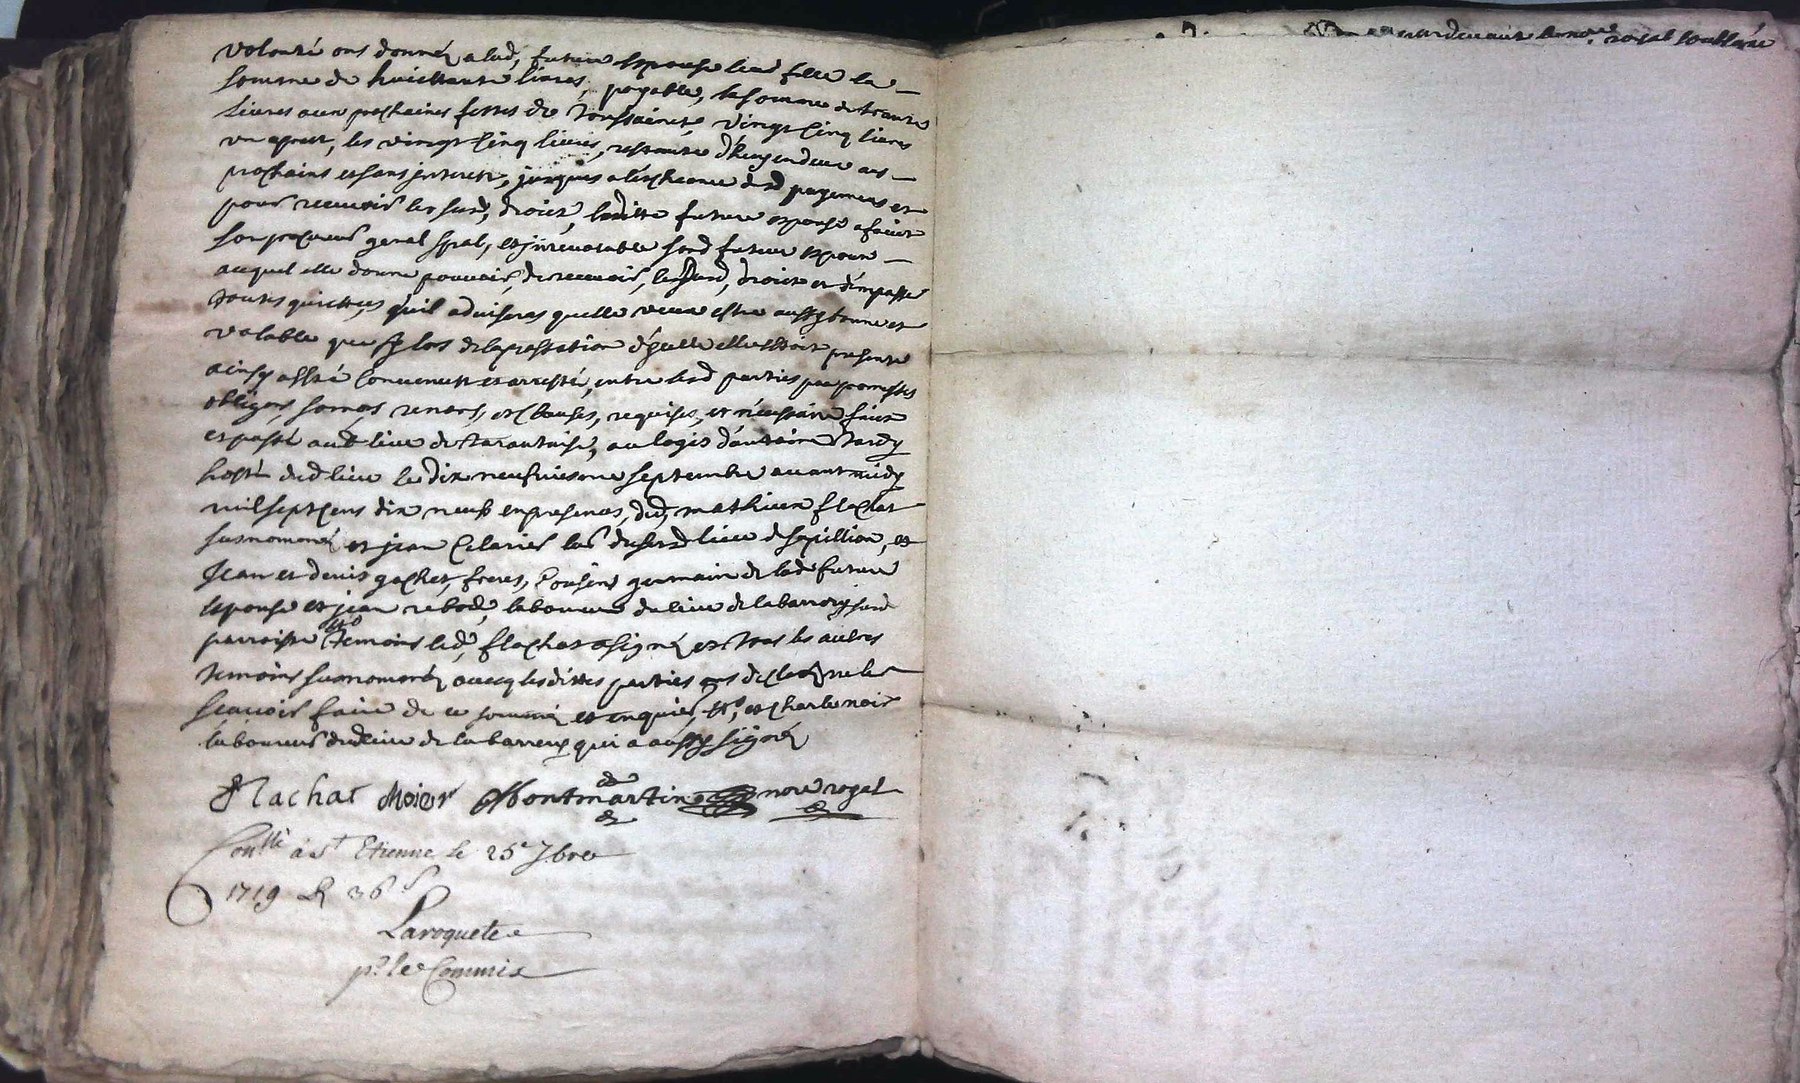 volonté ont donnés a lad, future espouse leur fille la
somme de huictante livres, payable, la somme de trante
livres aux prochaines festes de Toussaincts vingt cinq livres
un apres, les vingt cinq livres, restante
prochains et sans interets, jusques a lescheance desd payemens et
pour recevoir les susd, droits, laditte future espouse a faict
son procureur gnral spal, et jrrevocable sond futur espoux
auquel elle donne pouvoir, de recevoir, les susd, droits et d'en passer
toutes quictances qu'il advisera quelle veux estre aussy bonne et
valable que sy lors de la prestation d'jcelle elle estoit presente
ainsy a esté convenu et arresté, entre lesd parties par promesses
obligons, somons renons, et clauses, requises, et necessaire faict
et passé aud lieu de Tarantaise, au logis d'antoine Tardy
hoste dud lieu le dix neufviesme septembre avant midy
mil sept cens dix neuf en presences, dud, mathieu flachat
susnommé et jean Celarier lab dususd lieu de et
Jean et denis gachet, freres, Cousins germain de lade future
espouse et jean rebod, laboureur du lieu de la barrory susd
parroisse temoins led, flachat a signé et tous les autres
temoins susnommés avecq lesdittes parties ont declaré ne le
scavoir faire de ce sommés et enquis, et charle noir
laboureur dud lieu de la barrery qui a aussy signé
Flachat Moier Montmartin nore royal
Conllé à St Etienne le 25e 7bre
1719 R 36 s
Laroquete
pr le Commis
royal